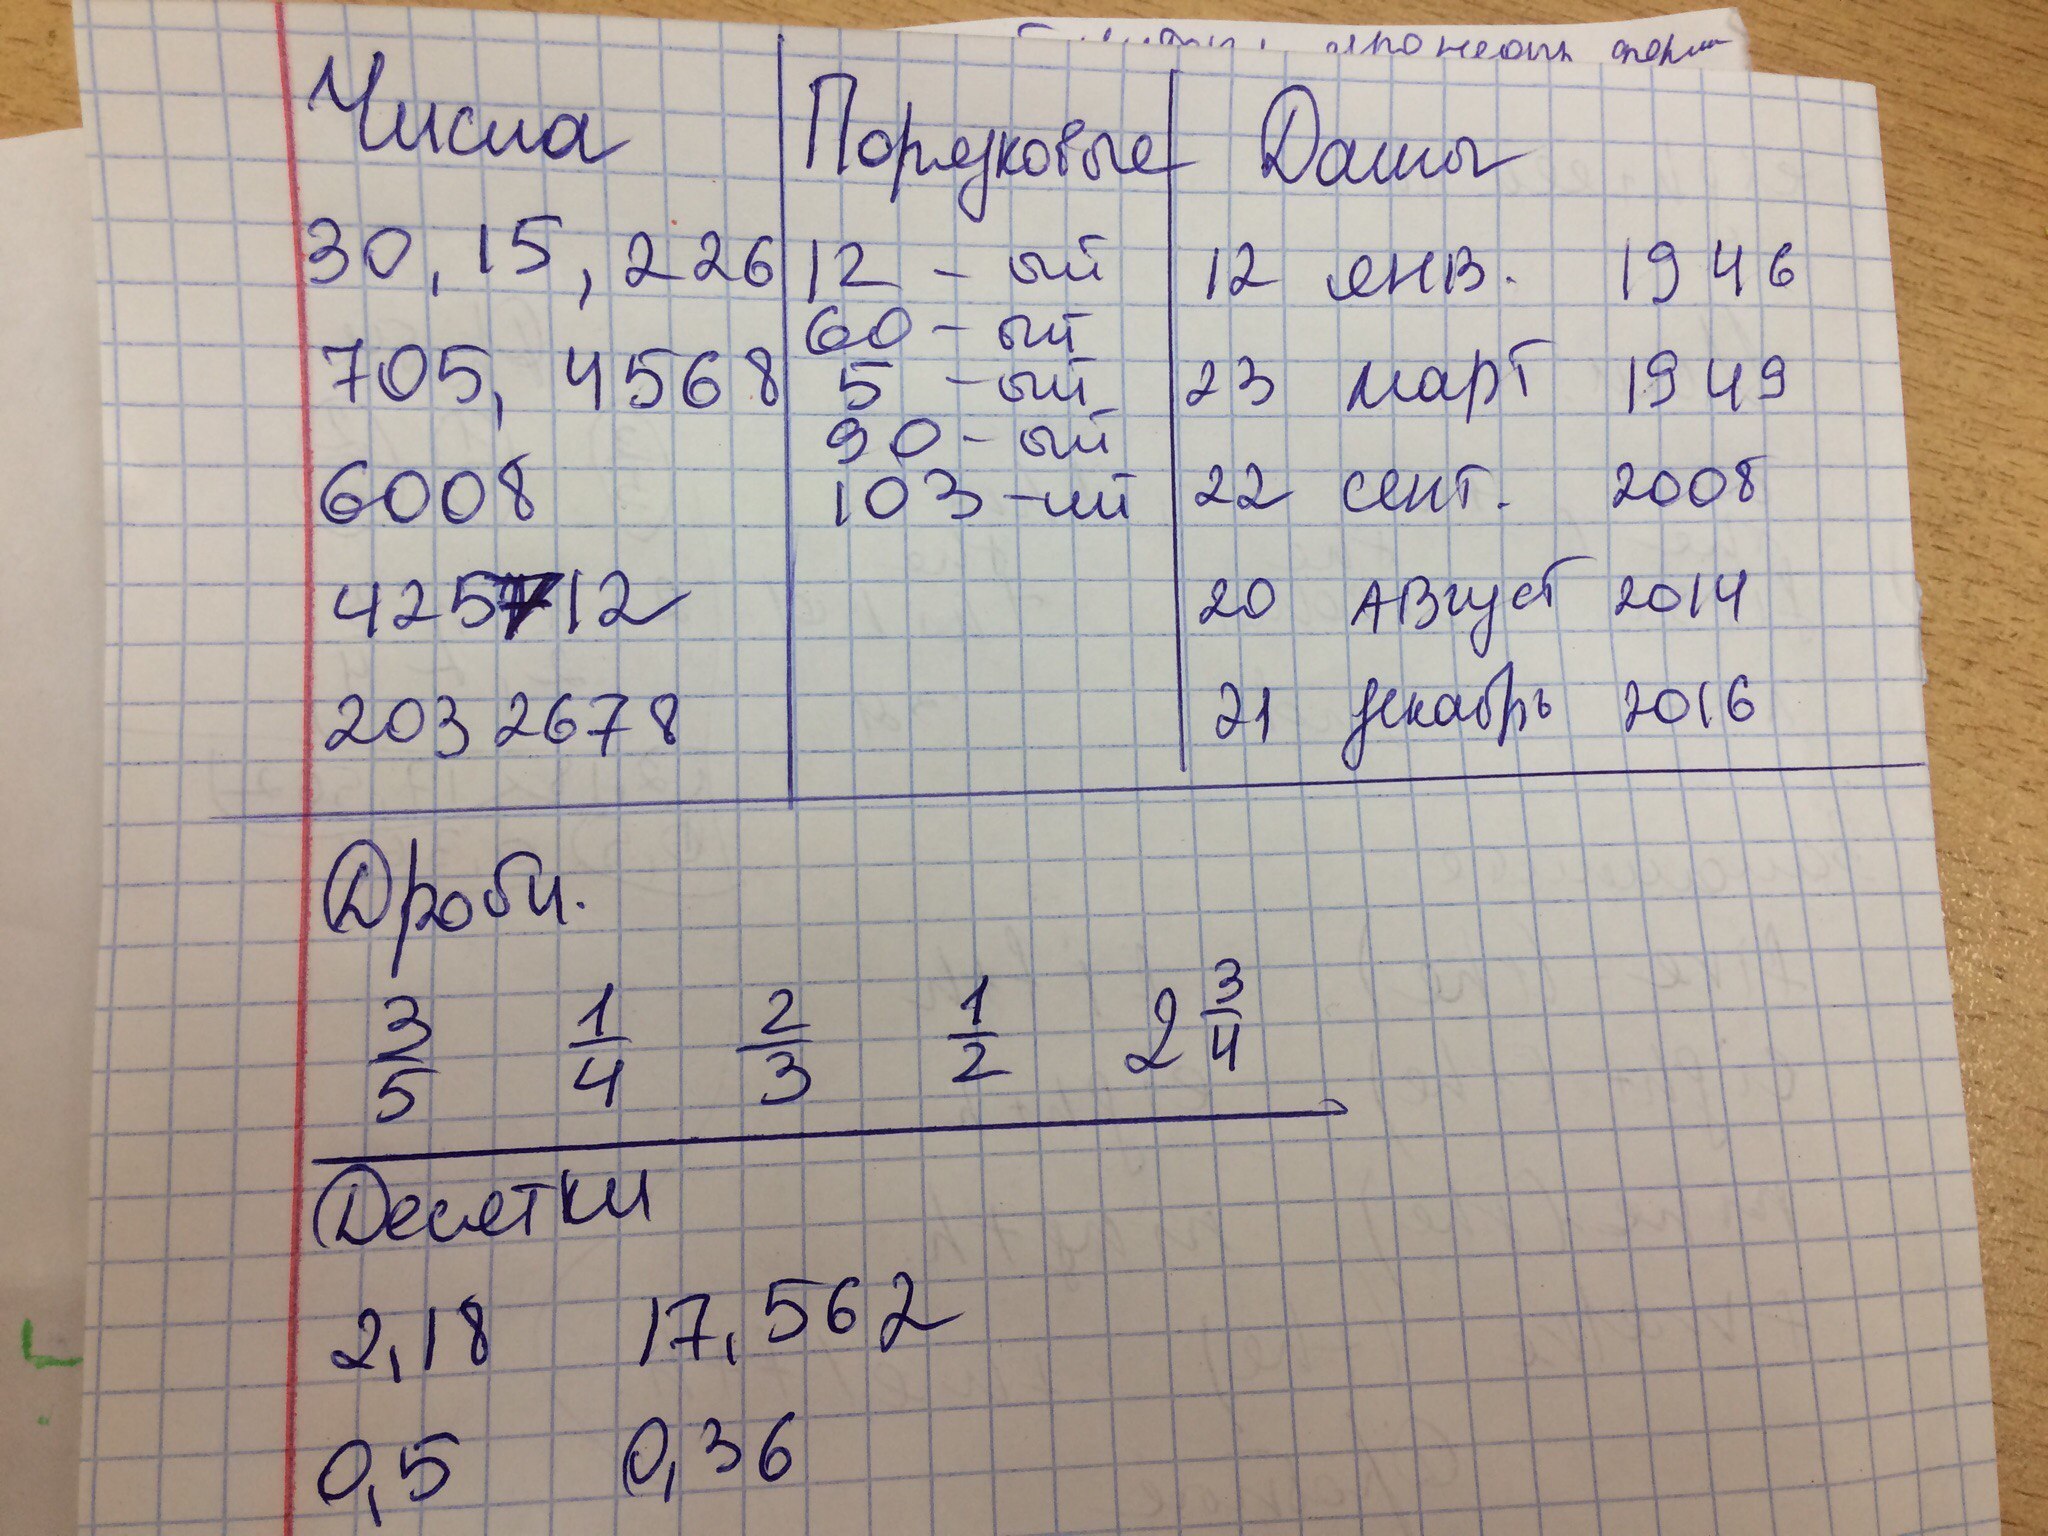 Числа
30, 15, 226
705, 4568
6008
425712
2032678
Порядковые
12 - ый
60 - ый
5 - ый
90 - ый
103 - ий
Даты
12 янв. 1946
23 март 1949
22 сент. 2008
20 Август 2014
21 декабрь 2016
Дроби.
3/5 1/4 2/3 1/2 2 3/4
Десятки
2,18 17,562
0,5 0,36